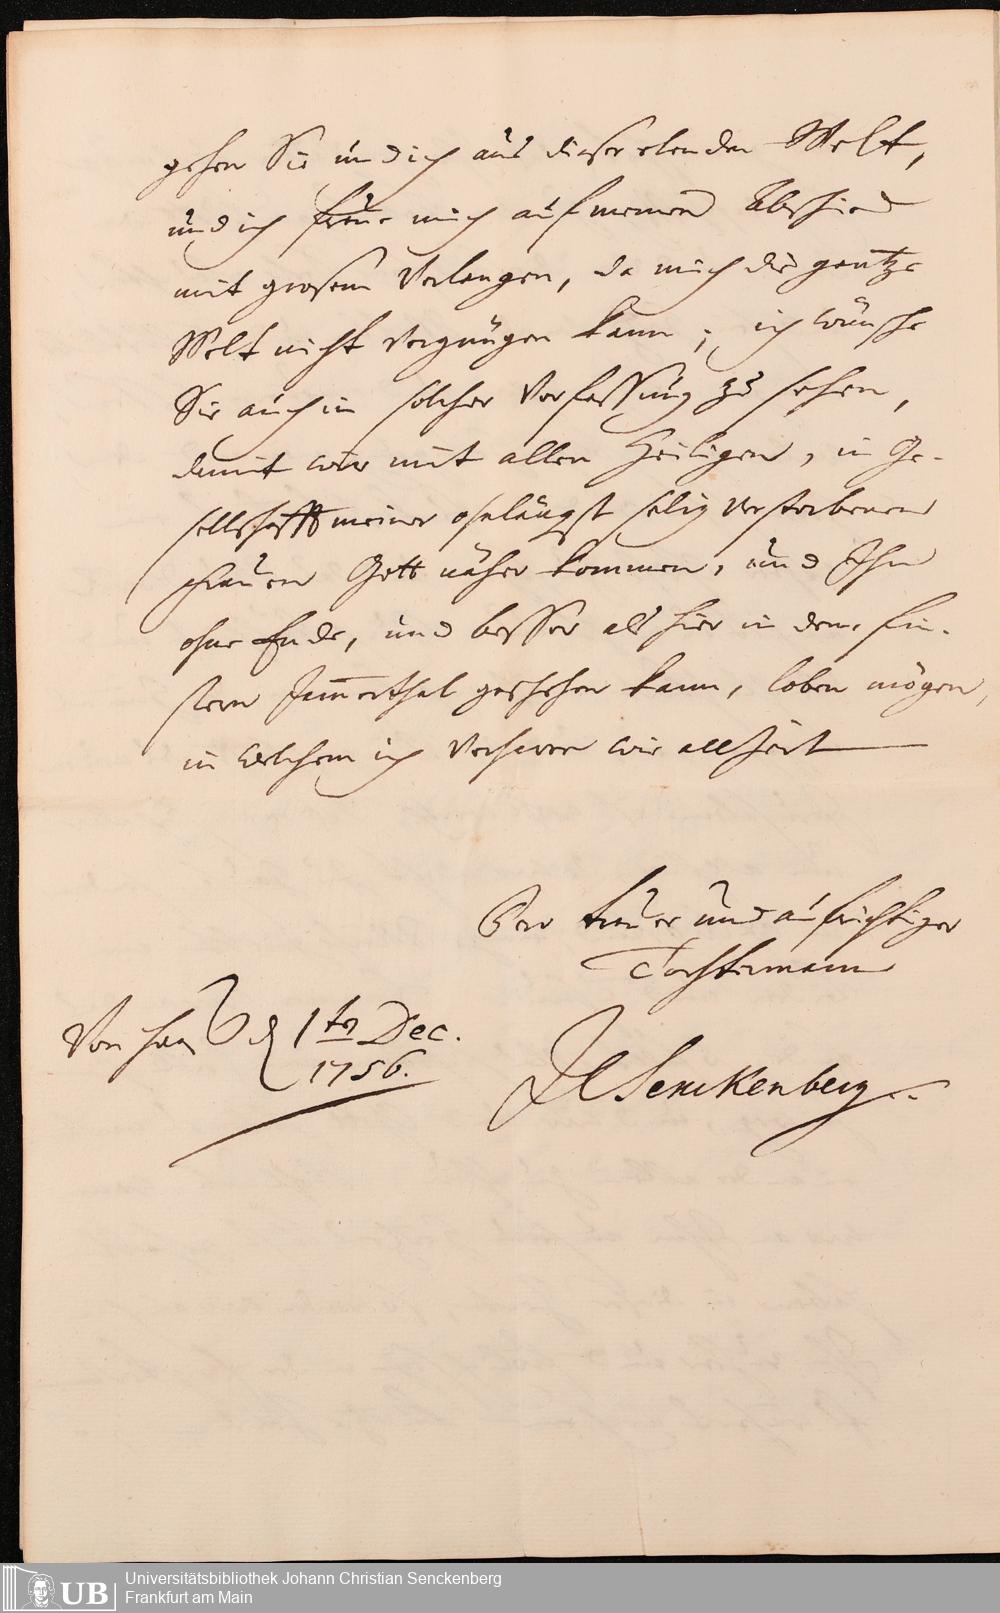 gehen Sie und ich aus dieser elenden Welt,
und ich freue mich auf meinen Abschied
mit grosem Verlangen, da mich die gantze
Welt nicht vergnügen kann; ich wünsche
Sie auch in solcher Verfassung zu sehen,
damit wir mit allen Heiligen, in Ge-
sellschafft meiner ohnlängst selig verstorbenen
Frauen Gott näher kommen, und Ihn
ohne Ende, und besser als hier in dem fin-
stern Jam̄erthal geschehen kann, loben mögen,
in welchem ich verharre wie allzeit
Der treuer und aufrichtiger
Tochtermann
Von Hauß d 1ten Dec.
1756.
JCSenckenberg
UB Universitätsbibliothek Johann Christian Senckenberg
Frankfurt am Main